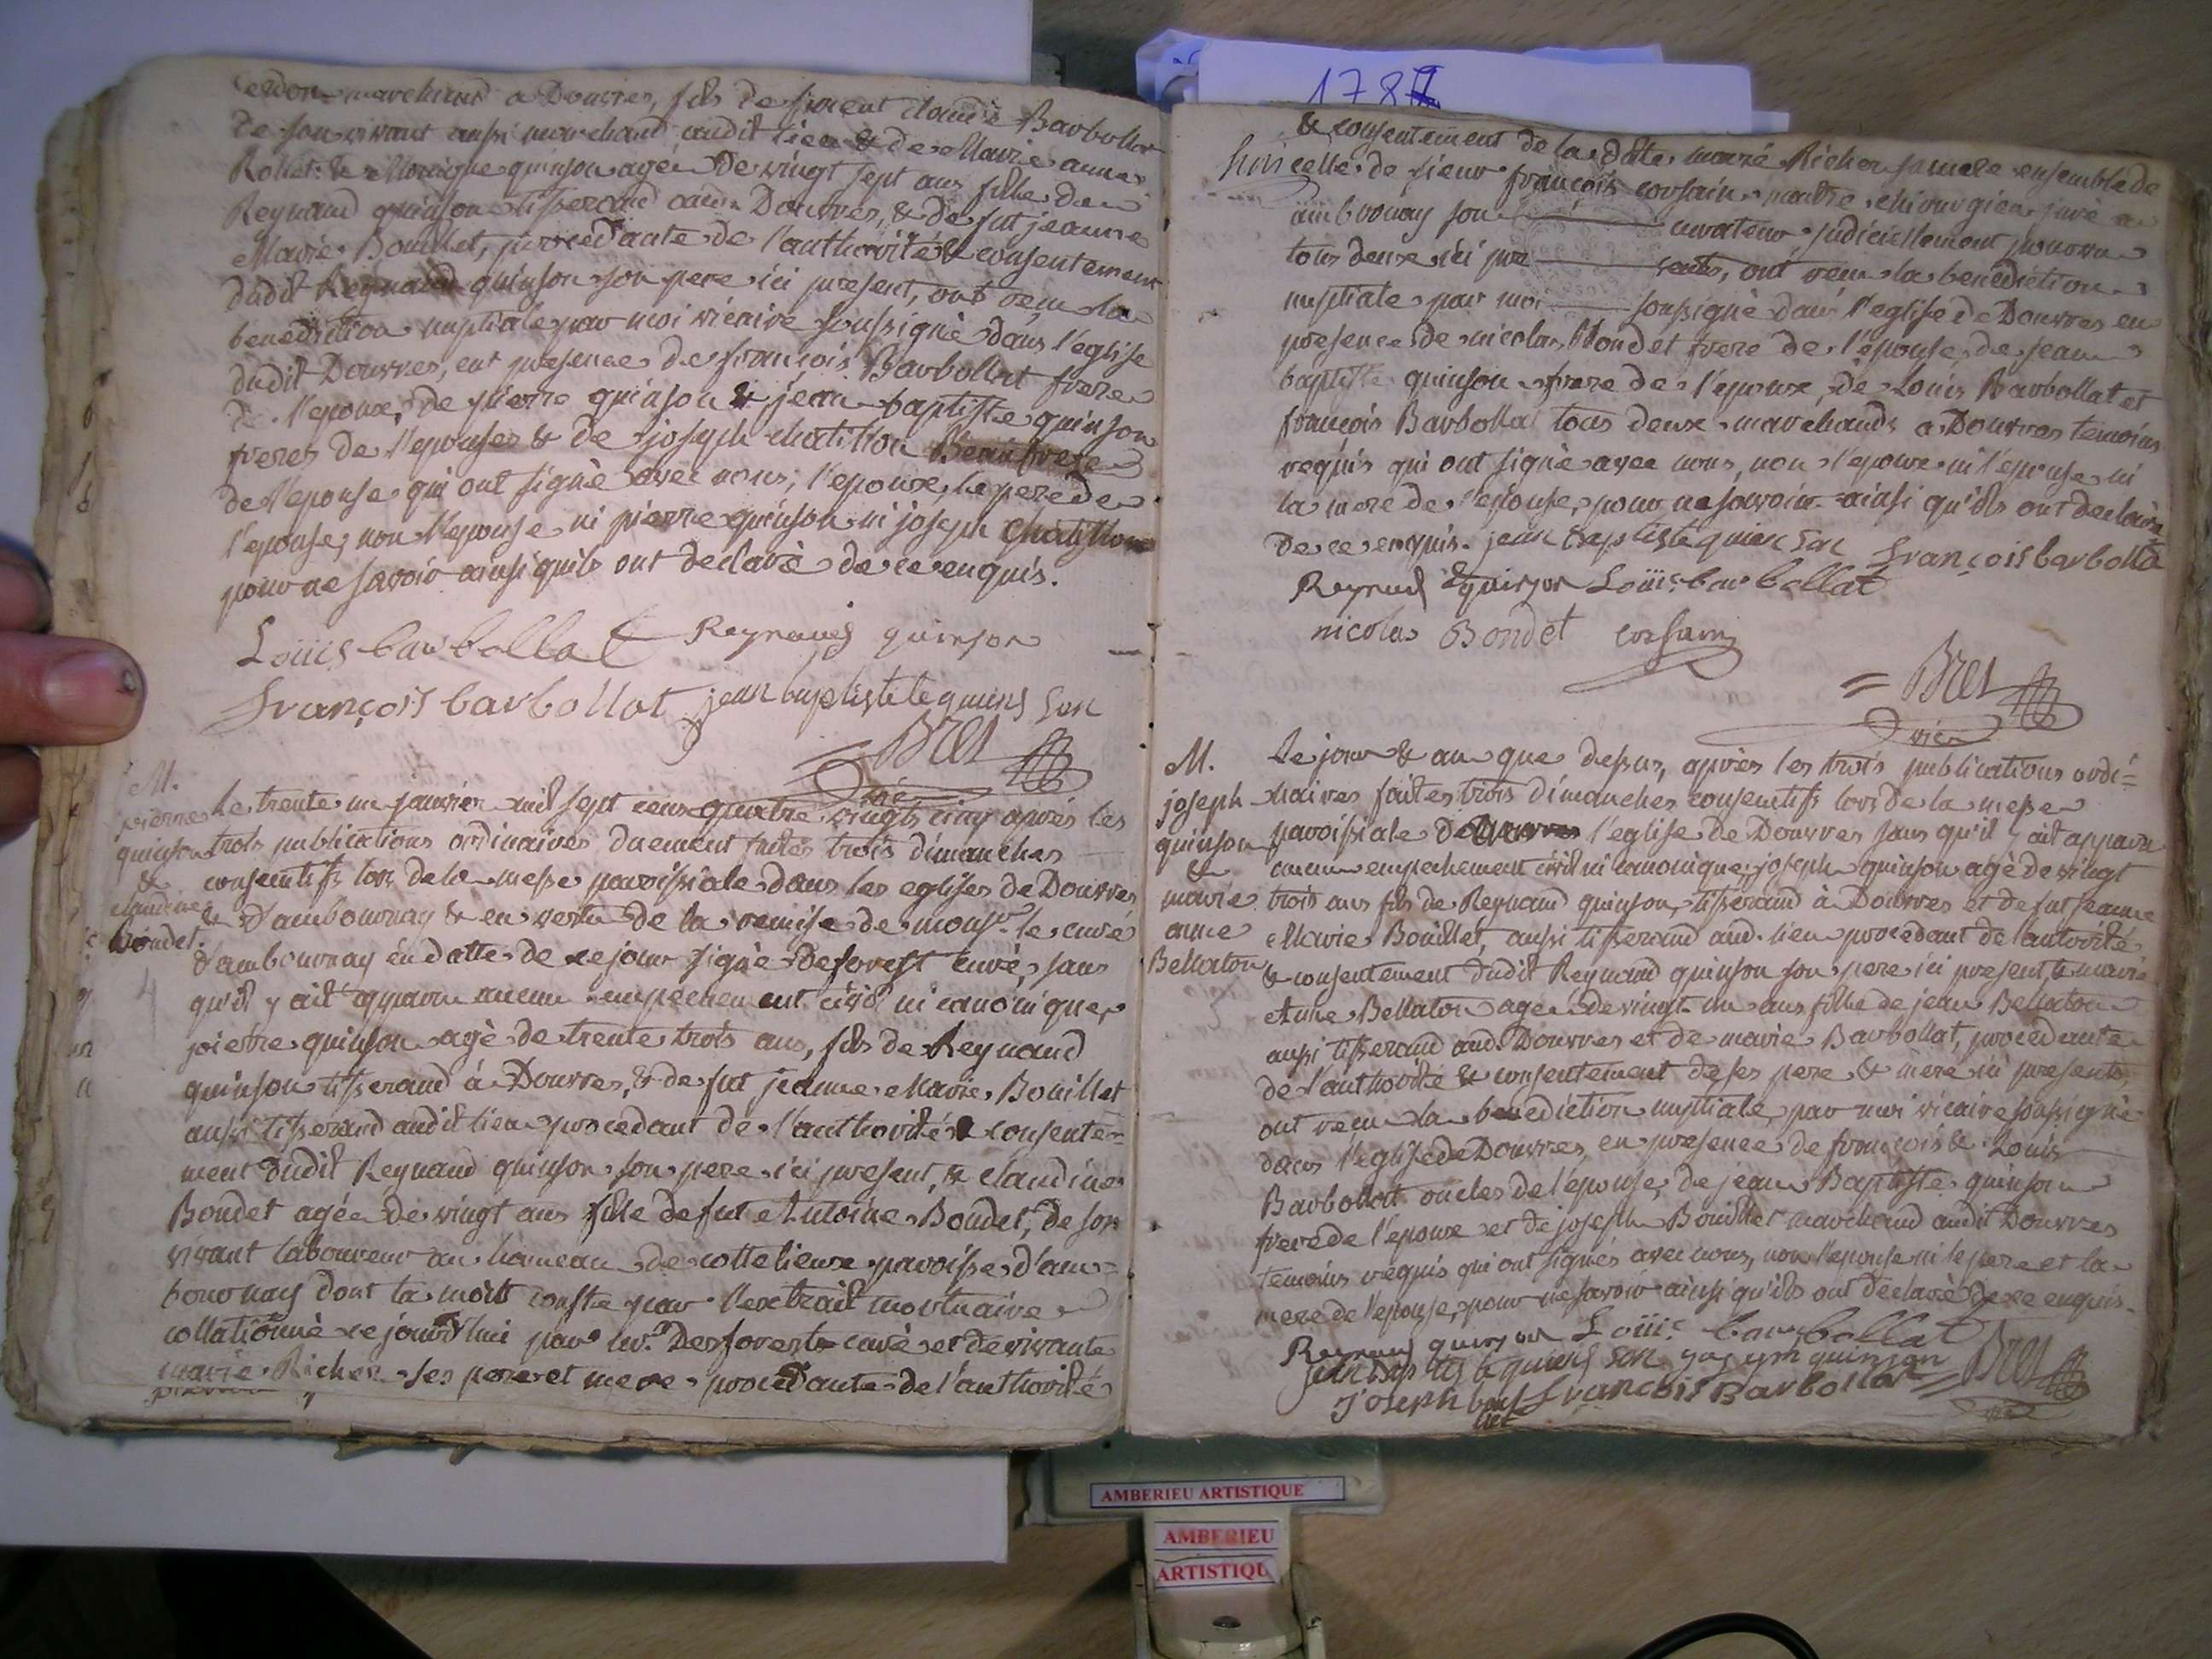 marchand a Douvres, fils de sieur claude Barbollat
de son vivant aussi marchand audit lieu & de Marie anne
Rollet & Monique quinson agée de vingt sept ans fille de
Reynaud quinson tisserand aud. Douvres, & de fut jeanne
Marie Bouillet, procedante de l'authorité & consentement
dudit Reynaud quinson son pere ici present, ont recu la
benediction nuptiale par moi vicaire soussigné dans l'eglise
dudit Douvres, ent presence de françois Barbollat frere
de l'epoux, de pierre quinson & jean baptiste quinson
freres de l'epouse & de joseph chatillon Beaufrere
de l'epouse qui ont signé avec nous, l'epoux, le pere de
l'epouse, non l'epouse ni pierre quinson ni joseph Chatillon
pour ne savoir ainsi quils ont declaré de ce enquis.
Louis barbollat Reynaud quinson
françois barbollat jean baptiste quinson
Bret
vic
M.
pierre
quinson
&
claudine
Bondet.
Le trente un janvier mil sept cens quatre vingts cinq après les
trois publications ordinaires duement faites trois dimanches
consecutifs lors de la messe paroissiale dans les eglises de Douvres
& d'ambournay & en vertu de la remise de monsr. le curé
d'ambournay en datte de ce jour signé deforest curé, sans
qu'il y ait apparu aucun empechement civil ni canonique,
pierre quinson agé de trente trois ans, fils de Reynaud
quinson tisserand à Douvres, & de fut jeanne Marie Bouillet
aussi tisserand audit lieu procedant de l'authorité & consente=
ment dudit Reynaud quinson son pere ici present, & claudine
Bondet agée de vingt ans fille de fut Antoine Bondet, de son
vivant laboureur au hameau de cottelieux paroisse d'am=
bournay dont la mort conste par l'extrait mortuaire
collationné ce jourd'hui par mr. Desforests curé et de vivante
marie Richer ses pere et mere procedante de l'authorité
& consentement de la ditte marie Richer sa mere ensemble de
celle de sieur françois corsain maitre chirurgien juré a
ambronay son curateur judiciellement pourvu
tous deux ici pre sents, ont recu la benediction
nuptiale par moi soussigné dans l'eglise de Douvres en
presence de nicolas Bondet frere de l'epouse, de jean
baptiste quinson frere de l'epoux, de Louis Barbollat et
françois Barbollat tous deux marchands a Douvres temoins
requis qui ont signé avec nous, non l'epoux ni l'epouse ni
la mere de l'epouse, pour ne savoir ainsi qu'ils ont declaré
de ce enquis. jean baptiste quinson françois barbollat
Reynaud quinson Louis barbollat
nicolas Bondet corsain
Bret
vic
M.
joseph
quinson
&
marie
anne
Bellaton
Le jour & an que dessus, après les trois publications ordi=
naires faites trois dimanches consecutifs lors de la messe
paroissiale de l'eglise de Douvres sans qu'il y ait apparu
aucun empechement civil ni canonique; joseph quinson agé de vingt
trois ans fils de Reynaud quinson, tisserand à Douvres et de fut jeanne
Marie Bouillet, aussi tisserand aud. lieu procedant de l'autorité
& consentement dudit Reynaud quinson son pere ici present, & marie
Anne Bellaton agée de vingt un ans fille de jean Bellaton
aussi tisserand aud. Douvres et de marie Barbollat, procedante
de l'authorité & consentement de ses pere & mere ici presents,
ont recu la benediction nuptiale, par moi vicaire soussigné
dans l'eglise de Douvres, en presence de françois & Louis
Barbollat oncles de l'epouse, de jean Baptiste quinson
frere de l'epoux et de joseph Bouillet marchand audit Douvres
temoins requis qui ont signés avec nous, non l'epouse ni le pere et la
mere de l'epouse, pour ne savoir ainsi qu'ils ont declaré de ce enquis.
Reynaud quinson Louis barbollat
jean baptiste quinson joseph quinson Bret
Joseph bouillet françois Barbollat
vic
178
AMBERIEU ARTISTIQUE
AMBERIEU
ARTISTIQU